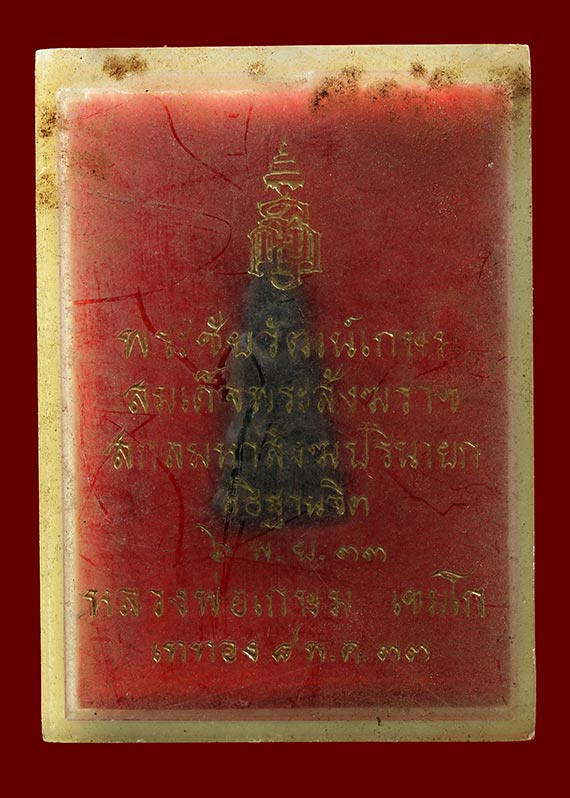 พระชัยวัฒน์เกษม
สมเด็จพระสังฆราช
สกลมหาสังฆปรินายก
อธิฐานจิต
๖ พ.ย. ๓๓
หลวงพ่อเกษม เขมโก
เททอง ๘ พ.ค. ๓๓